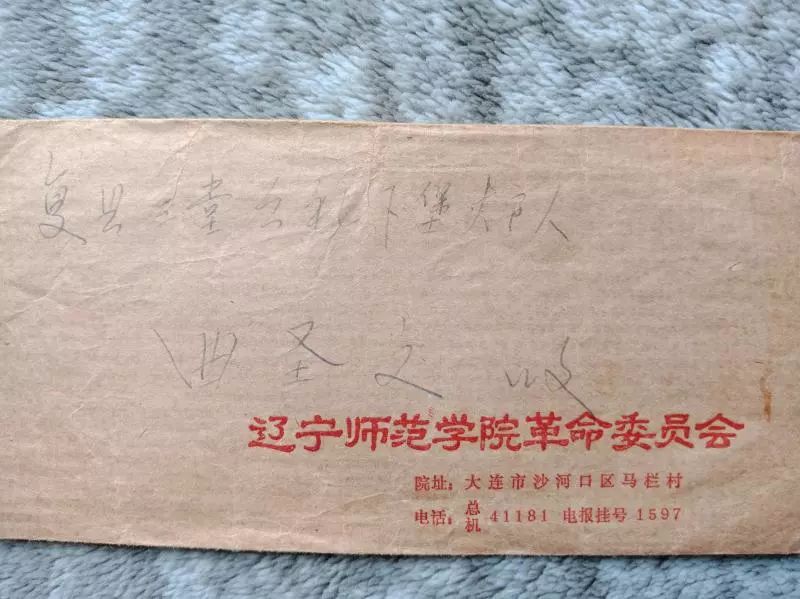 复县三堂公社下堡大队
田圣文 收
辽宁师范学院革命委员会
院址：大连市沙河口区马栏村
电话：总机 41181 电报挂号 1597